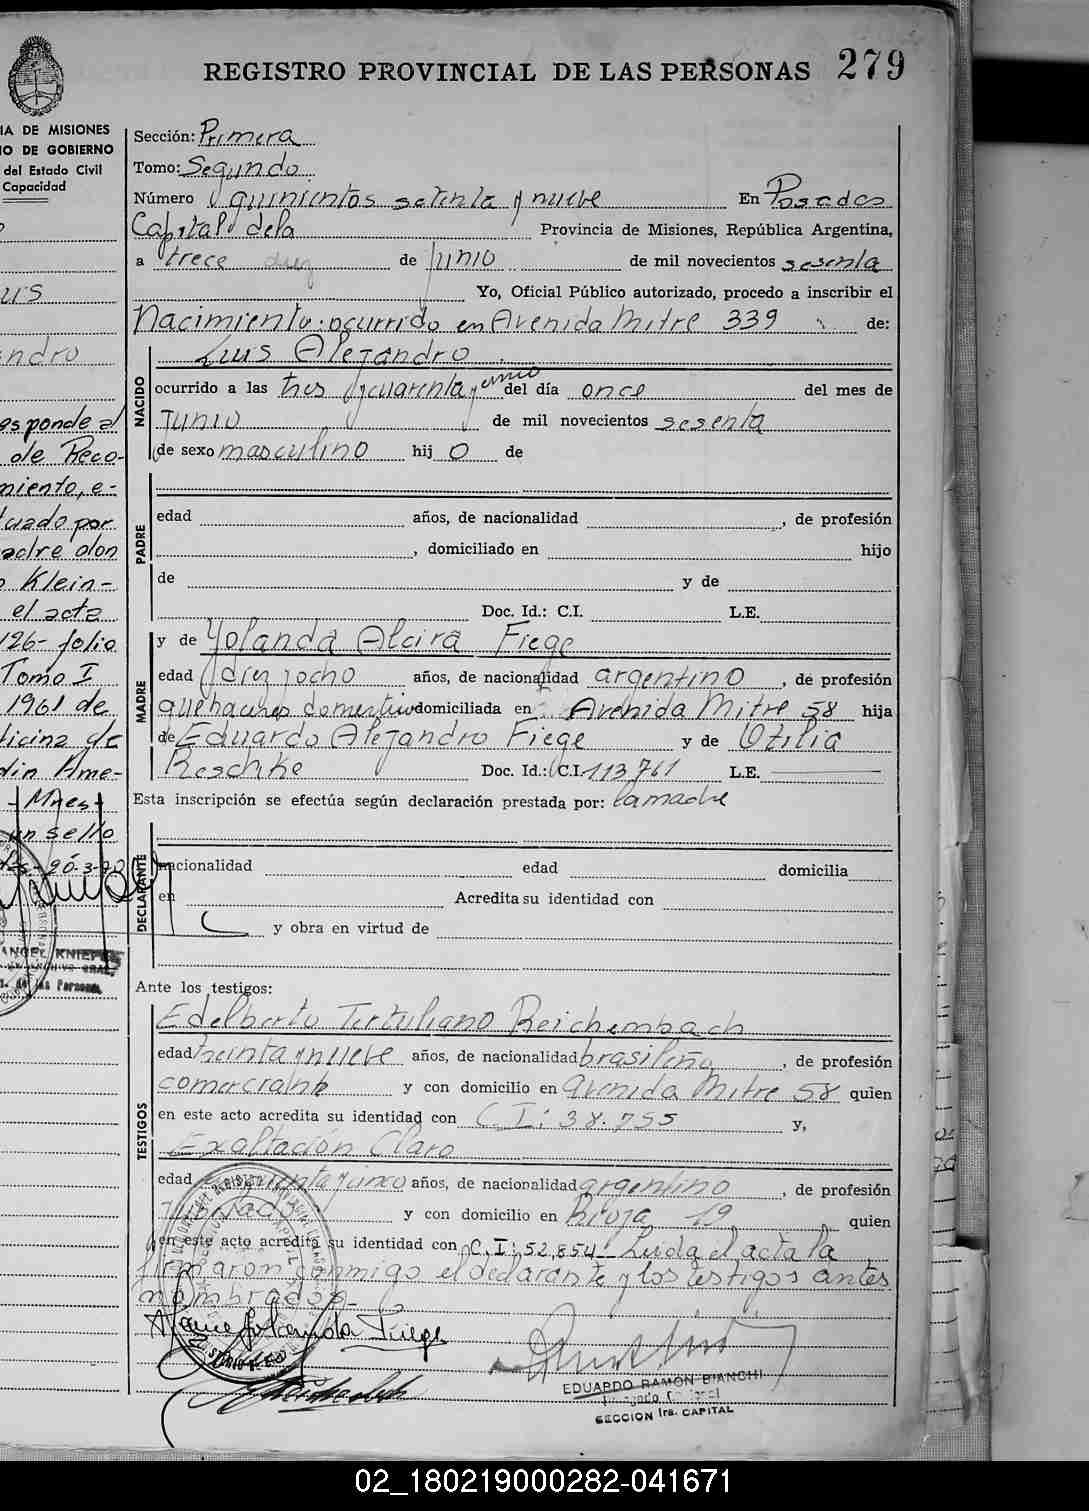 REGISTRO PROVINCIAL DE LAS PERSONAS 279
IA DE MISIONES
IO DE GOBIERNO
del Estado Civil
Capacidad
us
ndro
esponde al
de Reco-
miento, e-
tuado por
adre don
o Klein-
el acta
126- folio
Tomo I
1961 de
ficina de
din Ame-
- Mnes -
un sello
20-3-70
ANGEL KNIEP
Sección: Primera
Tomo: Segundo
Número quinientos setenta y nueve En Posadas
Capital de la Provincia de Misiones, República Argentina,
a trece diez de Junio de mil novecientos sesenta
Yo, Oficial Público autorizado, procedo a inscribir el
Nacimiento: ocurrido en Avenida Mitre 339 de:
NACIDO
Luis Alejandro
ocurrido a las tres y cuarenta y cinco del día once del mes de
Junio de mil novecientos sesenta
de sexo masculino hij o de
PADRE
edad años, de nacionalidad , de profesión
, domiciliado en hijo
de y de
Doc. Id.: C.I. L.E.
MADRE
y de Yolanda Alcira Fiege
edad diez y ocho años, de nacionalidad argentino , de profesión
quehaceres domestivo domiciliada en Avenida Mitre 58 hija
de Eduardo Alejandro Fiege y de Otilia
Reschke Doc. Id.: C.I. 113761 L.E.
Esta inscripción se efectúa según declaración prestada por: la madre
DECLARANTE
nacionalidad edad domicilia
en Acredita su identidad con
y obra en virtud de
Ante los testigos:
TESTIGOS
Edelberto Tertuliano Reichembach
edad treinta y nueve años, de nacionalidad brasileña , de profesión
comerciante y con domicilio en avenida Mitre 58 quien
en este acto acredita su identidad con C.I: 38.755 y,
Exaltación Claro
edad cincuenta y cinco años, de nacionalidad argentino , de profesión
Jubilado y con domicilio en Rioja 19 quien
en este acto acredita su identidad con C.I: 52.854 Leida el acta la
firmaron conmigo el declarante y los testigos antes
nombrados-
Yolanda Fiege
EDUARDO RAMON BIANCHI
SECCION 1ra. CAPITAL
02_180219000282-041671